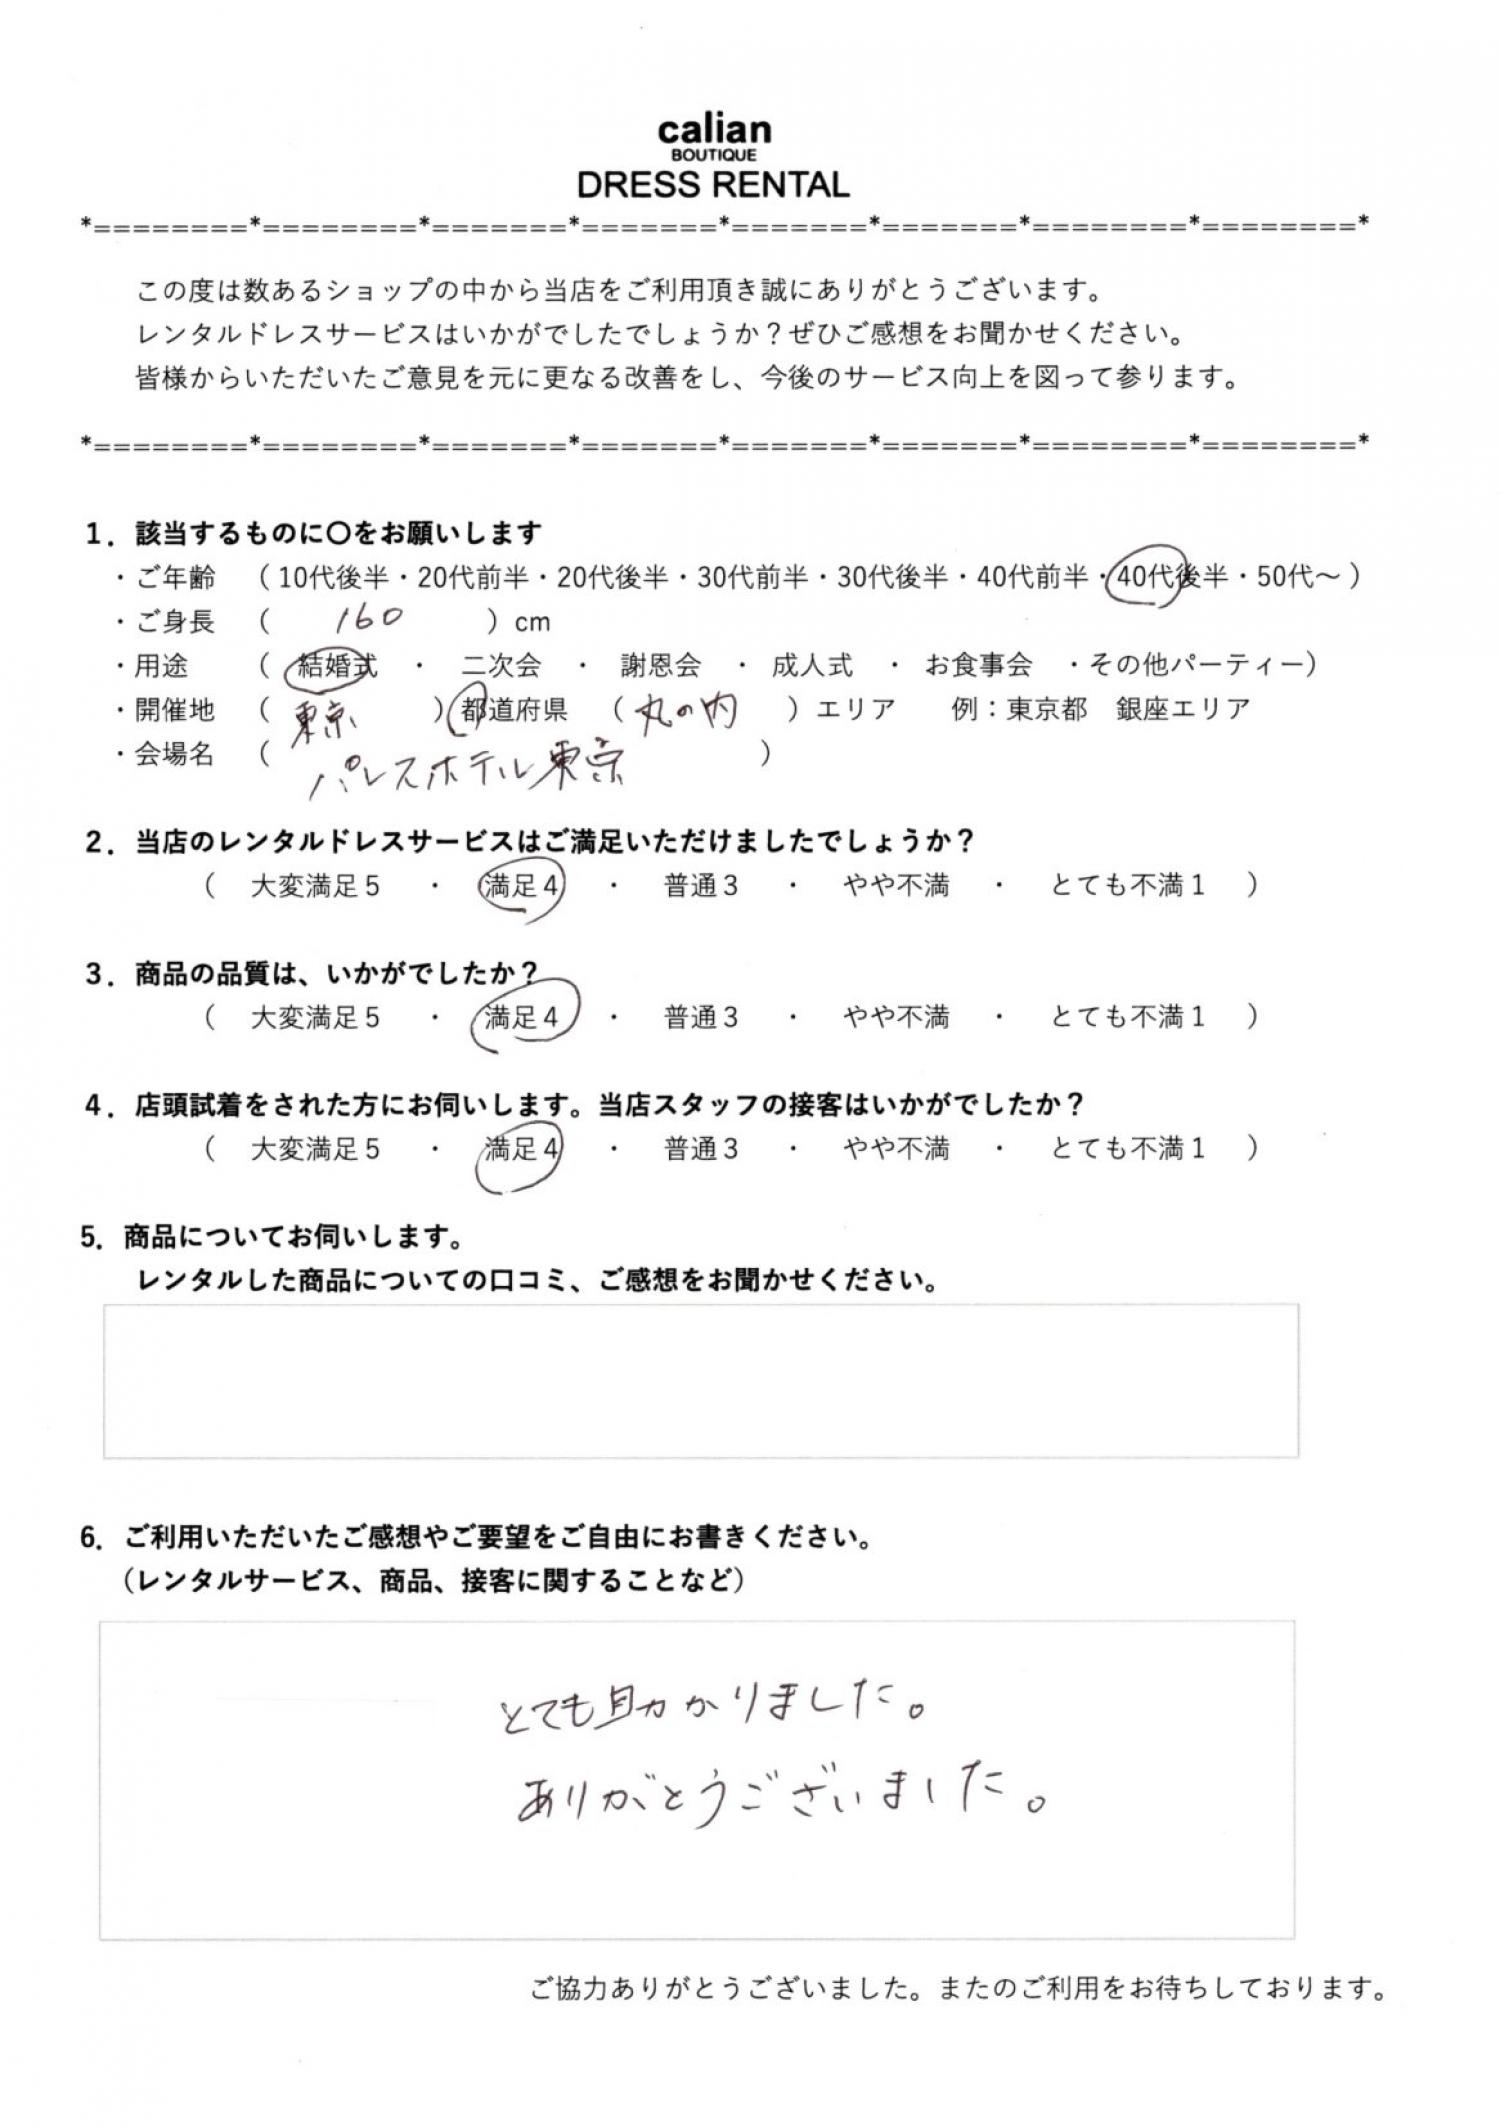 calian
BOUTIQUE
DRESS RENTAL
*========*========*=======*=======*=======*=======*========*========*
この度は数あるショップの中から当店をご利用頂き誠にありがとうございます。
レンタルドレスサービスはいかがでしたでしょうか？ぜひご感想をお聞かせください。
皆様からいただいたご意見を元に更なる改善をし、今後のサービス向上を図って参ります。
*========*========*=======*=======*=======*=======*========*========*
1．該当するものに〇をお願いします
・ご年齢 （10代後半・20代前半・20代後半・30代前半・30代後半・40代前半・40代後半・50代～）
・ご身長 （ 160 ）cm
・用途 （ 結婚式 ・ 二次会 ・ 謝恩会 ・ 成人式 ・ お食事会 ・その他パーティー）
・開催地 （ 東京 ）都道府県 （ 丸の内 ）エリア 例：東京都 銀座エリア
・会場名 （ パレスホテル東京 ）
2．当店のレンタルドレスサービスはご満足いただけましたでしょうか？
（ 大変満足５ ・ 満足４ ・ 普通３ ・ やや不満 ・ とても不満１ ）
3．商品の品質は、いかがでしたか？
（ 大変満足５ ・ 満足４ ・ 普通３ ・ やや不満 ・ とても不満１ ）
4．店頭試着をされた方にお伺いします。当店スタッフの接客はいかがでしたか？
（ 大変満足５ ・ 満足４ ・ 普通３ ・ やや不満 ・ とても不満１ ）
5．商品についてお伺いします。
レンタルした商品についての口コミ、ご感想をお聞かせください。
6．ご利用いただいたご感想やご要望をご自由にお書きください。
（レンタルサービス、商品、接客に関することなど）
とても助かりました。
ありがとうございました。
ご協力ありがとうございました。またのご利用をお待ちしております。